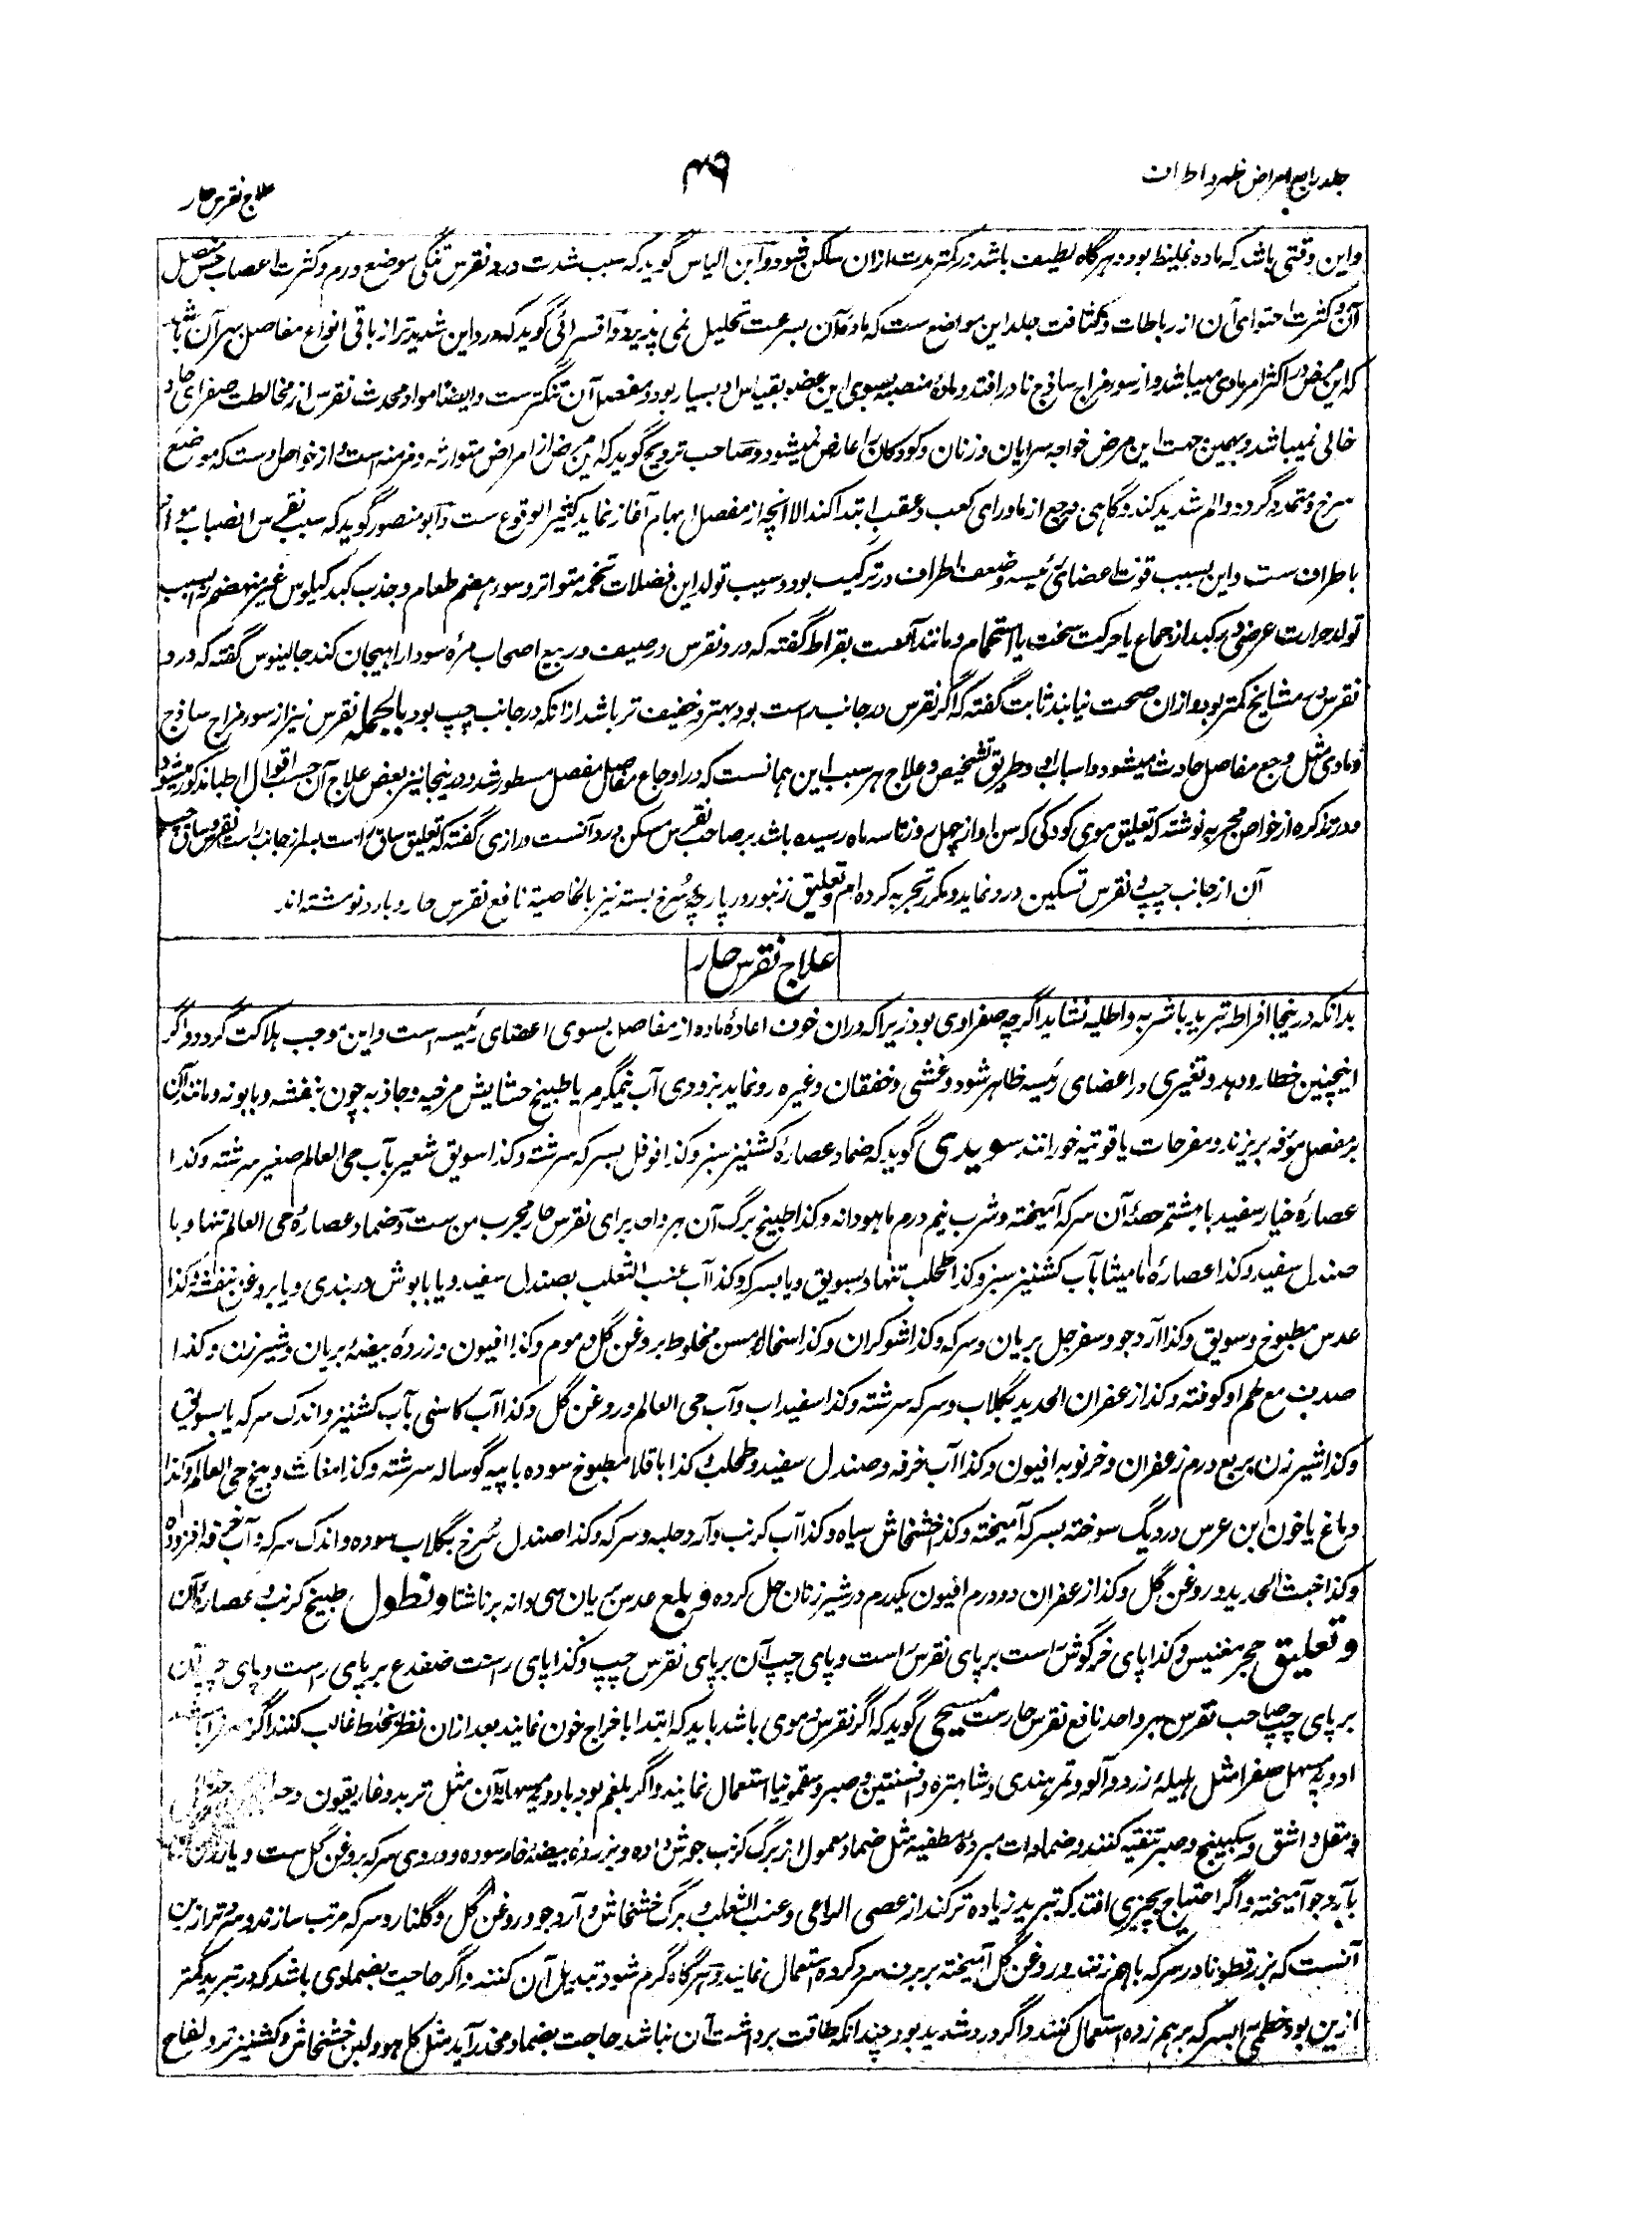 جلد رابع امراض ظهر و اطراف
۵۳
علاج نقرس حار
و این وقتی باشد که ماده غلیظ بود و هرگاه لطیف باشد در کمتر مدت ازان ساکن شود و ابن الیاس گوید که سبب شدت درد نقرس تنگی موضع ورم و کثرت اعصاب حس مفصل
آن و کثرت احتوای آن از رباطات و کثافت جلد این مواضع ست که ماده آن بسرعت تحلیل نمی پذیرد و آقسرائی گوید که درد این شدیدتر از باقی انواع مفاصل بهر آن باشد
که این مرض در اکثر امر مادی میباشد و از سوء مزاج ساذج نادر افتد و مادهٔ منصبه بسوی این عضو بقیاس او بسیار بود و مفصل آن تنگترست و ایضا مواد محدث نقرس از مخالطت صفرای حاد
خالی نمیباشد و بهمین جهت این مرض خواجه سرایان و زنان و کودکان را عارض نمیشود و صاحب ترویح گوید که این مرض از امراض متوارثه و مزمنه است و از خواص اوست که موضع
سرخ و متمدد گردد و الم شدید کند و گاهی وجع از ماورای کعب و عقب ابتدا کند الا انچه از مفصل ابهام آغاز نماید کثیر الوقوع ست و ابو منصور گوید که سبب نقرس انصباب مواد
باطراف ست و این بسبب قوت اعضای رئیسه و ضعف اطراف در ترکیب بود و سبب تولد این فضلات تخمه متواتر و سوء هضم طعام و جذب کبد کیلوس غیر منهضم بسبب
تولد حرارت عرضی در کبد از جماع یا حرکت سخت یا استحمام و مانند آنست بقراط گفته که درد نقرس در صیف و ربیع اصحاب مرهٔ سودا را هیجان کند جالینوس گفته که درد
نقرس در مشایخ کمتر بود و ازان صحت نیابند ثابت گفته که اگر نقرس در جانب راست بود بهتر و خفیف تر باشد ازانکه در جانب چپ بود بالجمله نقرس نیز از سوء مزاج ساذج
و مادی مثل وجع مفاصل حادث میشود و اسباب او و طریق تشخیص و علاج هر سبب این همانست که در اوجاع مفاصل مفصل مسطور شد و درینجا نیز بعض علاج آن حسب اقوال اطبا مذکور میشود
و در تذکره از خواص مجربه نوشته که تعلیق موی کودکی که سن او از چهل روز تا سه ماه رسیده باشد بر صاحب نقرس مسکن درد آنست و رازی گفته که تعلیق ساق راست از جانب راست نقرس و ساق چپ
آن از جانب چپ نقرس تسکین درد نماید و مکرر تجربه کرده ام و تعلیق زنبور در پارچهٔ سُرخ بسته نیز بالخاصیة نافع نقرس حار و بارد نوشته اند
علاج نقرس حار
بدانکه درینجا افراط تبرید باشربه و اطلیه نشاید اگرچه صفراوی بود زیرا که دران خوف اعادهٔ ماده از مفاصل بسوی اعضای رئیسه است و این موجب هلاکت گردد و اگر
اینچنین خطا رو دهد و تغیری در اعضای رئیسه ظاهر شود و غشی و خفقان و غیره رو نماید بزودی آب نیمگرم یا طبیخ حشایش مرخیه و جاذبه چون بنفشه و بابونه و مانند آن
بر مفصل مؤفه بریزند و مفرحات یاقوتیه خورانند سویدی گوید که ضماد عصارهٔ کشنیز سبز و کذا فوفل بسرکه سرشته و کذا سویق شعیر بآب حی العالم صغیر سرشته و کذا
عصارهٔ خیار سفید با هشتم حصهٔ آن سرکه آمیخته و شرب نیم درم ماهودانه و کذا طبیخ برگ آن هر واحد برای نقرس حار مجرب من ست و ضماد عصارهٔ حی العالم تنها و با
صندل سفید و کذا عصارهٔ مامیثا بآب کشنیز سبز و کذا طحلب تنها و بسویق و یا بسرکه و کذا آب عنب الثعلب بصندل سفید و یا بابوش دربندی و یا بروغن بنفشه و کذا
عدس مطبوخ و سویق و کذا آرد جو و سفرجل بریان و سرکه و کذا شوکران و کذا سحالهٔ مسن مخلوط بروغن گل و موم و کذا افیون و زردهٔ بیضهٔ بریان و شیر زن و کذا
صدف مع لحم او کوفته و کذا زعفران الحدید بگلاب و سرکه سرشته و کذا سفیداب و آب حی العالم و روغن گل و کذا آب کاسنی بآب کشنیز و اندک سرکه یا بسویق
و کذا شیر زن بربع درم زعفران و خرنوبه افیون و کذا آب خرفه و صندل سفید و طحلب و کذا باقلا مطبوخ سوده با پیه گوساله سرشته و کذا مغاث و بیخ حی العالم و کذا
دماغ یا خون ابن عرس در دیگ سوخته بسرکه آمیخته و کذا خشخاش سیاه و کذا آب کرنب و آرد حلبه و سرکه و کذا صندل سُرخ بگلاب سوده و اندک سرکه و آب خرفه افزوده
و کذا خبث الحدید و روغن گل و کذا زعفران دو درم افیون یکدرم در شیر زنان حل کرده و بلع عدس بریان سی دانه بر ناشتا و نطول طبیخ کرنب و عصارهٔ آن
و تعلیق حجر مغنیس و کذا پای خرگوش راست بر پای نقرس راست و پای چپ آن بر پای نقرس چپ و کذا پای راست ضفدع بر پای راست و پای چپ آن
بر پای چپ صاحب نقرس هر واحد نافع نقرس حارست مسیحی گوید که اگر نقرس دموی باشد باید که ابتدا باخراج خون نمایند بعد ازان نظر بخلط غالب کنند اگر صفرا باشد
ادویهٔ مسهل صفرا مثل هلیلهٔ زرد و آلو و تمر هندی و شاهتره و افسنتین و صبر و سقمونیا استعمال نمایند و اگر بلغم بود بادویهٔ مسهلهٔ آن مثل تربد و غاریقون و
و مقل و اشق و سکبینج و صبر تنقیه کنند و ضمادات مبرده مطفیه مثل ضماد معمول از برگ کرنب جوش داده و بزردهٔ بیضهٔ خام سوده و دردی سرکه بروغن گل ست و یا
بآرد جو آمیخته و اگر احتیاج بچیزی افتد که تبرید زیاده تر کند از عصی الراعی و عنب الثعلب و برگ خشخاش و آرد جو و روغن گل و گلنار و سرکه مرتب سازند و سردتر ازین
آنست که بزر قطونا در سرکه باهم زنند و روغن گل آمیخته بر برف سرد کرده استعمال نمایند و هرگاه گرم شود تبدیل آن کنند و اگر حاجت بضمادی باشد که در تبرید کمتر
ازین بود خطمی را بسرکه برهم زده استعمال کنند و اگر درد شدید بود چندانکه طاقت برداشت آن نباشد حاجت بضماد مخدر آید مثل کاهو و لبن خشخاش و کشنیز تر و لفاح